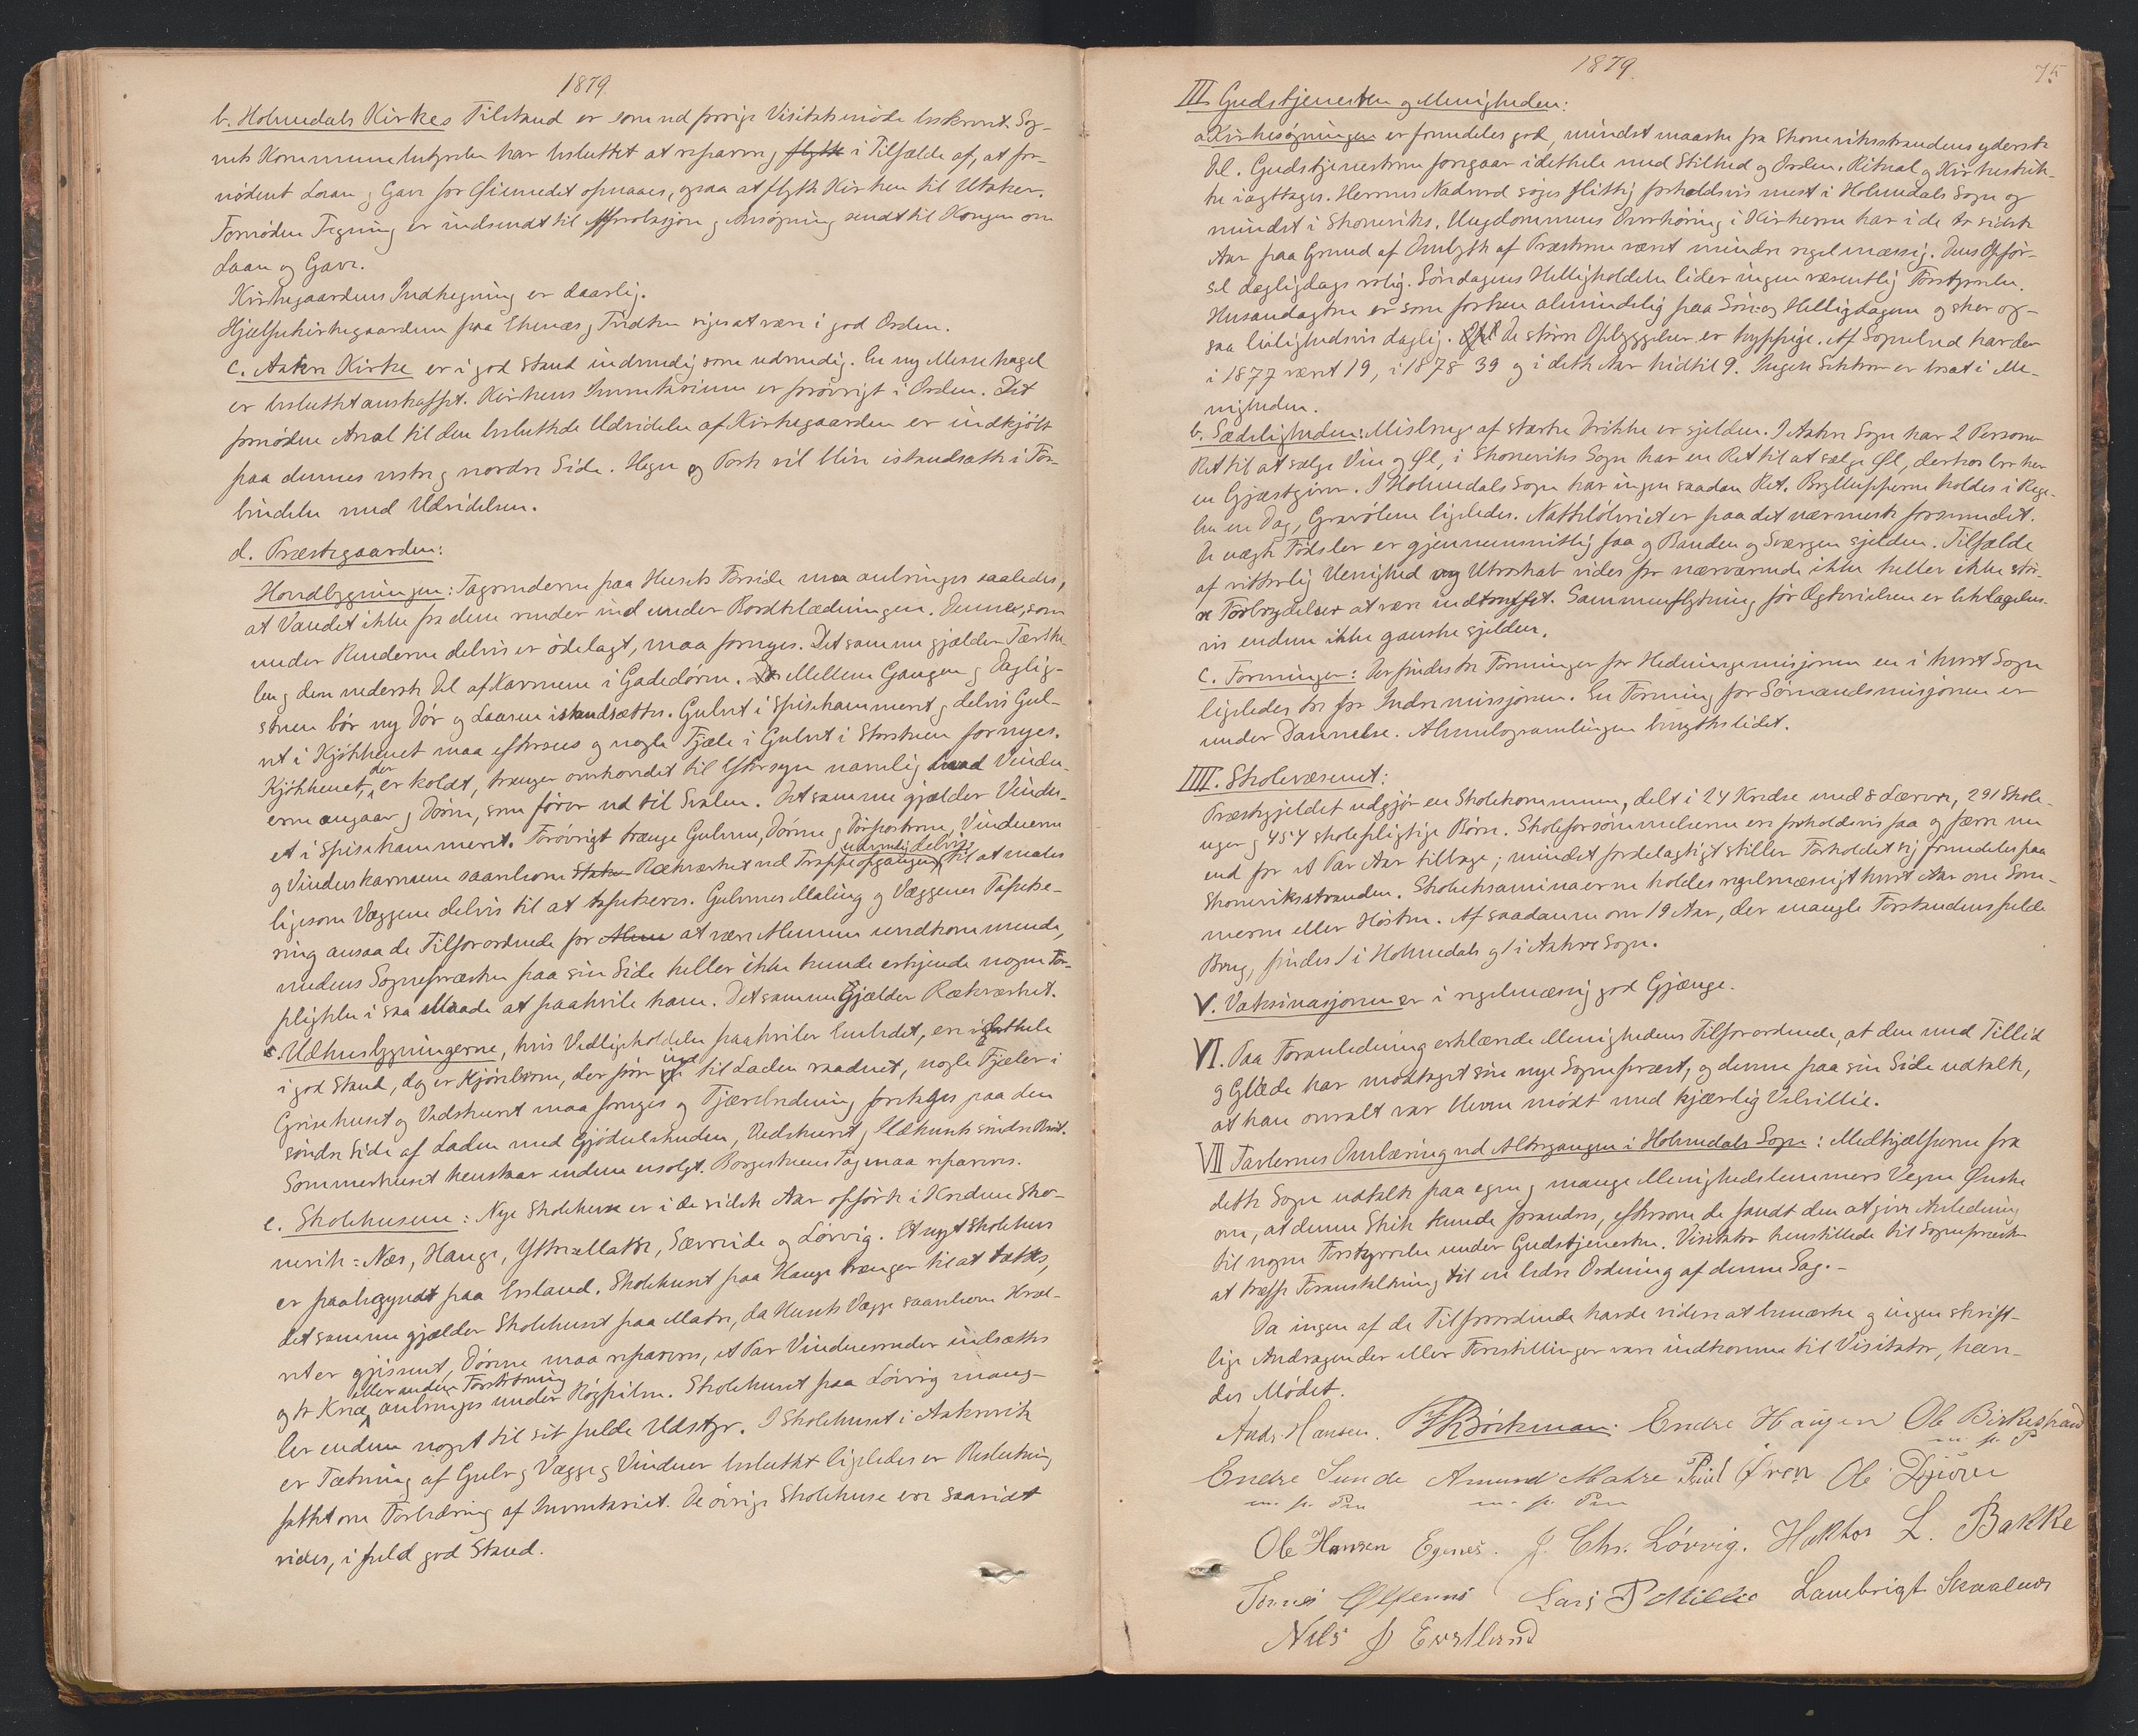 1879.
b. Holmedals Kirkes Tilstand er som ved forrige Visitatsmöde beskrevet. Sog-
nets Kommunebestyrelse har besluttet at reparere, flytte i Tilfælde af, at for-
nödent Laan og Gave for Öiemedet opnaaes, ogsaa at flytte Kirken til Utaker.
Fornöden Tegning er indsendt til Approbasjon og Ansögning sendt til Kongen om
Laan og Gave.
Kirkegaardens Indhegning er daarlig.
Hjælpekirkegaardene paa Ekenæs og Indther siges at være i god Orden.
c. Aakre Kirke er i god Stand indvendig som udvendig. En ny Messehagel
er besluttet anskaffet. Kirkens Inventarium er forövrigt i Orden. Det
fornödne Areal til den besluttede Udvidelse af Kirkegaarden er indkjöbt
paa dennes vestre og nordre Side. Hegn og Port vil blive istandsatte i For-
bindelse med Udvidelsen.
d. Præstegaarden:
Hovedbygningen: Tagrenderne paa Husets Forside maa anbringes saaledes,
at Vandet ikke fra dem rinder ind under Bordklædningen. Denne, som
under Renderne delvis er ödelagt, maa fornyes. Det samme gjælder Tærske-
len og den nederste Del af Karmene i Gadedören. Mellem Gangen og Daglig-
stuen bör ny Dör og Laasen istandsættes. Gulvet i Spisekammeret og delvis Gul-
vet i Kjökkenet maa eftersees og nogle Fjæle i Gulvet i Storstuen fornyes.
Kjökkenet, der er koldt, trænger overhovedet til Eftersyn navnlig hvad Vindu-
erne angaar og Dören, som förer ud til Svalen. Det samme gjælder Vindu-
et i Spisekammeret. Forövrigt trænge Gulvene, Dörene og Dörposterne, Vinduerne
og Vindueskarmene saavelsom Rækværket ved Trappeopgangen udvendig delvis til at males
ligesom Væggene delvis til at tapetseres. Gulvenes Maling og Væggenes Tapetse-
ring ansaa de Tilforordnede for at være Almuen uvedkommende,
medens Sognepræsten paa sin Side heller ikke kunde erkjende nogen For-
pligtelse i saa Maade at paahvile ham. Det samme gjælder Rækværket.
Udhusbygningerne, hvis Vedligeholdelse paahviler Embedet, ere i det hele
i god Stand, dog er Kjörebroen, der förer ind til Laden raadnet, nogle Fjæler i
Grisehuset og Vedskuret maa fornyes og Tjærebredning foretages paa den
söndre Side af Laden med Gjödselskuden, Vedskuret og Ildhusets söndre Bræt.
Sommerhuset henstaar endnu usolgt. Borgestuens Tag maa repareres.
e. Skolehusene: Nye Skolehuse er i de sidste Aar opförte i Kredsene Sko-
nevik: Næs, Hauge, Ytre Matre, Sævreide og Lövvig. Et nyt Skolehus
er paabegyndt paa Essland. Skolehuset paa Hauge trænger til at tættes,
det samme gjælder Skolehuset paa Matre, da Husets Vægge saavelsom Hvæl-
vet er gjisent, Dörene maa repareres, et Par Vinduesruder indsættes
og to Knæ eller anden Forstötning anbringes under Rögpiben. Skolehuset paa Lövvig mang-
ler endnu noget til sit fulde Udstyr. I Skolehuset i Aakrevik
er Tætning af Gulv og Vægge og Vinduer besluttet ligeledes er Beslutning
fattet om Forbedring af Inventariet. De övrige Skolehuse ere saavidt
vides, i fuld god Stand.
1879.
75
III Gudstjenesten og Menigheden:
a. Kirkesögningen er fremdeles god, mindst maaske fra Skoneviksstrandens yderste
Del. Gudstjenesterne foregaar i dethele med Stilhed og Orden. Ritual og Kirkeskik-
ke iagttages. Herrens Nadverd söges flittig forholdsvis mest i Holmedals Sogn og
mindst i Skoneviks. Ungdommens Overhöring i Kirkerne har i de to sidste
Aar paa Grund af Ombytte af Præsterne været mindre regelmæssig. Dens Opför-
sel dagligdags rolig. Söndagens Helligholdelse lider ingen væsentlig Forstyrrelse.
Husandagten er som forhen almindelig paa Sön- og Helligdagene og sker og-
saa leilighedsvis daglig. De större Opbyggelser er hyppige. Af Sognebud har der
i 1877 været 19, i 1878 39 og i dette Aar hidtil 9. Ingen Sekter er bosat i Me-
nigheden.
b. Sædeligheden: Misbrug af stærke Drikke er sjelden. I Aakre Sogn har 2 Personer
Ret til at sælge Vin og Öl, i Skoneviks Sogn har en Ret til at sælge Øl, derhos bor her
en Gjæstgiver. I Holmedals Sogn har ingen saadan Ret. Brylluppene holdes i Rege-
len en Dag, Gravölene ligeledes. Natteløberiet er paa det nærmeste forsvundet.
De uægte Födsler er gjennemsnitlig faa og Banden og Sværgen sjelden. Tilfælde
af vitterlig Uenighed og Utroskab vides for nærværende ikke heller ikke stör-
re Forbrydelser at være indtruffet. Sammenflytning för Ægtevielsen er beklagelig-
vis endnu ikke ganske sjelden.
c. Foreninger: Der findes tre Foreninger for Hedningemisjonen en i hvert Sogn
ligeledes tre for Indremissjonen. En Forening for Sömandsmisjonen er
under Dannelse. Almuebogsamlingen benyttes lidet.
IIII. Skolevæsenet:
Præstegjeldet udgjör en Skolekommune, delt i 24 Kredse med 8 Lærere, 291 Skole-
uger og 454 skolepligtige Börn. Skoleforsömmelserne ere forholdsvis faa og færre nu
end for et Par Aar tilbage; mindst fordelagtigt stiller Forholdet sig fremdeles paa
Skoneviksstranden. Skoleeksaminaerne holdes regelmæssigt hvert Aar om Som-
meren eller Hösten. Af saadanne over 19 Aar, der mangle Forstandens fulde
Brug, findes 1 i Holmedals og 1 i Aakre Sogn.
V. Vaksinasjonen er i regelmæssig god Gjænge.
VI. Paa Foranledning erklærede Menighedens Tilforordnede, at den med Tillid
og Glæde har modtaget sin nye Sognepræst, og denne paa sin Side udtalte,
at han overalt var bleven mödt med kjærlig Velvillie.
VII Tavlernes Ombæring ved Altergangen i Holmedals Sogn: Medhjælperne fra
dette Sogn udtalte paa egne og mange Menighedslemmers Vegne Ønske
om, at denne Skik kunde forandres, eftersom de fandt den at give Anledning
til nogen Forstyrrelse under Gudstjenesten. Visitator henstillede til Sognepræsten
at træffe Foranstaltning til en bedre Ordning af denne Sag. -
Da ingen af de Tilforordnede havde videre at bemærke og ingen skrift-
lige Andragender eller Forestillinger vare indkomne til Visitator, hæve-
des Mödet.
Andr. Hansen. Böckman. Endre Haugen Ole Birkestrand
m. p. P
Endre Sunde Amund Matre Ole
m. p. Pen m. p. Pen
Ole Hansen Egenes. J. Chr. Lövvig. Haktor L. Bakke
Lars P Lambrigt
Nils J